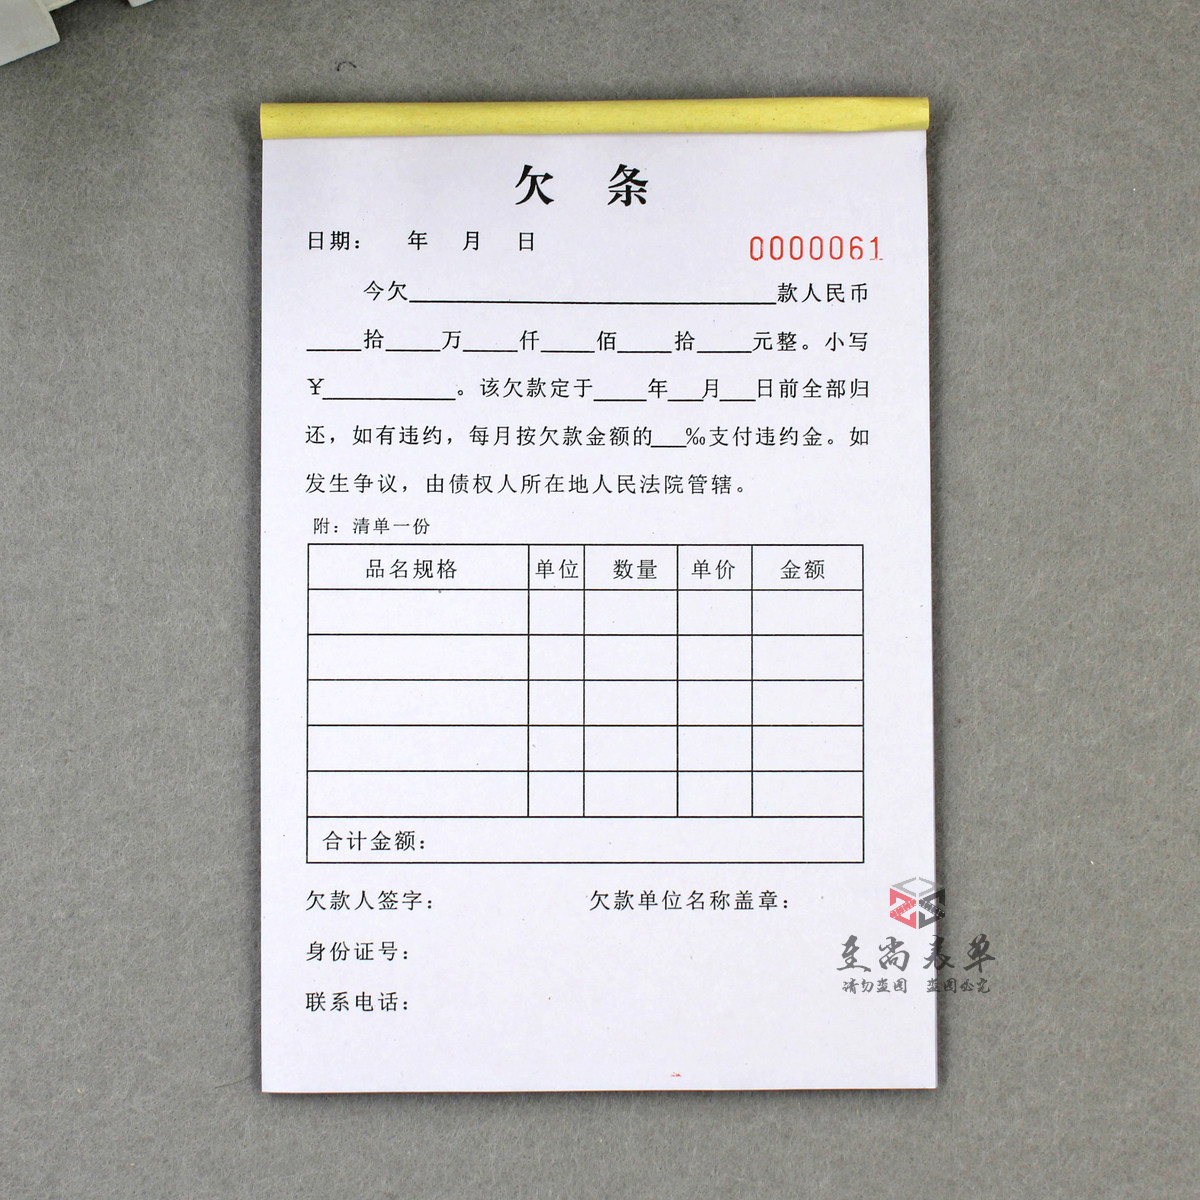 欠 条
日期: 年 月 日 0000061
今欠____________________款人民币
____拾____万____仟____佰____拾____元整。小写
¥__________。该欠款定于____年___月___日前全部归
还，如有违约，每月按欠款金额的___‰支付违约金。如
发生争议，由债权人所在地人民法院管辖。
附: 清单一份
品名规格 单位 数量 单价 金额
合计金额:
欠款人签字: 欠款单位名称盖章:
身份证号:
联系电话:
至尚表单
请勿盗图 盗图必究